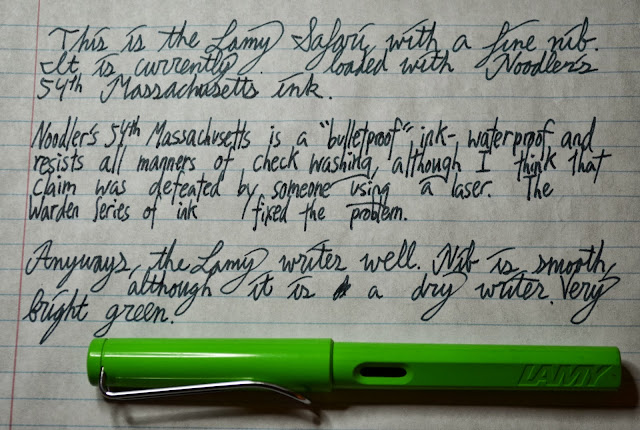 This is the Lamy Safari, with a fine nib.
It is currently loaded with Noodler's
54th Massachusetts ink.
Noodler's 54th Massachusetts is a "bulletproof" ink- waterproof and
resists all manners of check washing, although I think that
claim was defeated by someone using a laser. The
Warden Series of ink fixed the problem.
Anyways, the Lamy writer well. Nib is smooth,
although it is a dry writer. Very
bright green.
LAMY